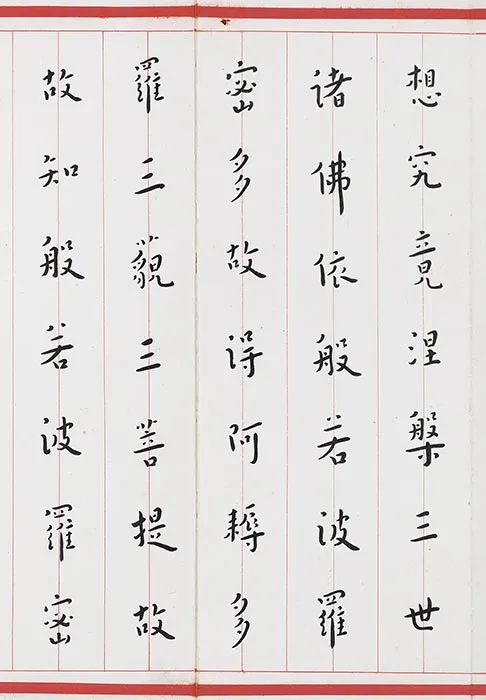 想究竟涅槃三世
諸佛依般若波羅
蜜多故得阿耨多
羅三藐三菩提故
故知般若波羅蜜